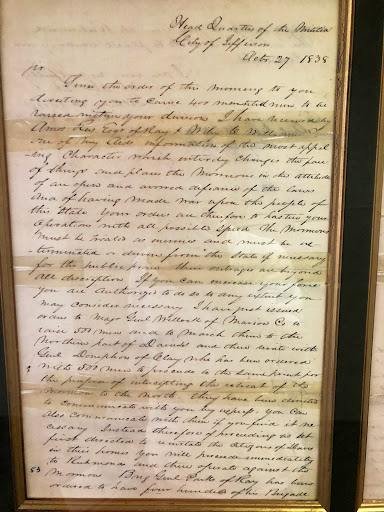 Head Quarters of the Militia
City of Jefferson
Octr. 27 1838
Sir
Since the order of the morning to you
directing you to cause 400 mounted men to be
raised within your division I have received by
Amos Rees Esqr of Ray & Wiley C Williams
one of my aids information of the most appal
ling Character which entirely changes the face
of things and places the Mormons in the attitude
of an open and avowed defiance of the laws
and of having made war upon the people of
this State. Your orders are therefore to hasten your
operations with all possible speed. The Mormons
must be treated as enemies and must be ex
terminated or driven from the State if necessary
for the public peace their outrages are beyond
all description. If you can increase your force
you are authorized to do so to any extent you
may consider necessary. I have just issued
orders to Majr Genl Willock of Marion Co to
raise 500 men and to march them to the
Northern part of Daviess and there unite with
Genl Doniphan of Clay who has been ordered
with 500 men to proceed to the same point for
the purpose of intercepting the retreat of the
Mormons to the north they have been directed
to communicate with you by express, you can
also communicate with them if you find it ne
cessary. Instead therefore of proceeding as at
first directed to reinstate the citizens of Daviess
in their homes you will proceed immediately
to Richmond and there operate against the
53 Mormons Brig Genl Parks of Ray has been
ordered to have four hundred of his Brigade